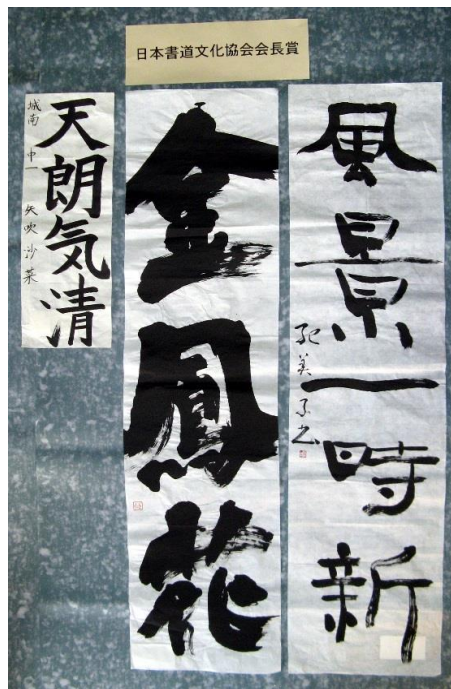 日本書道文化協会会長賞
風景一時新
紀美子書
金鳳花
天朗気清
城南 中一 矢吹沙菜